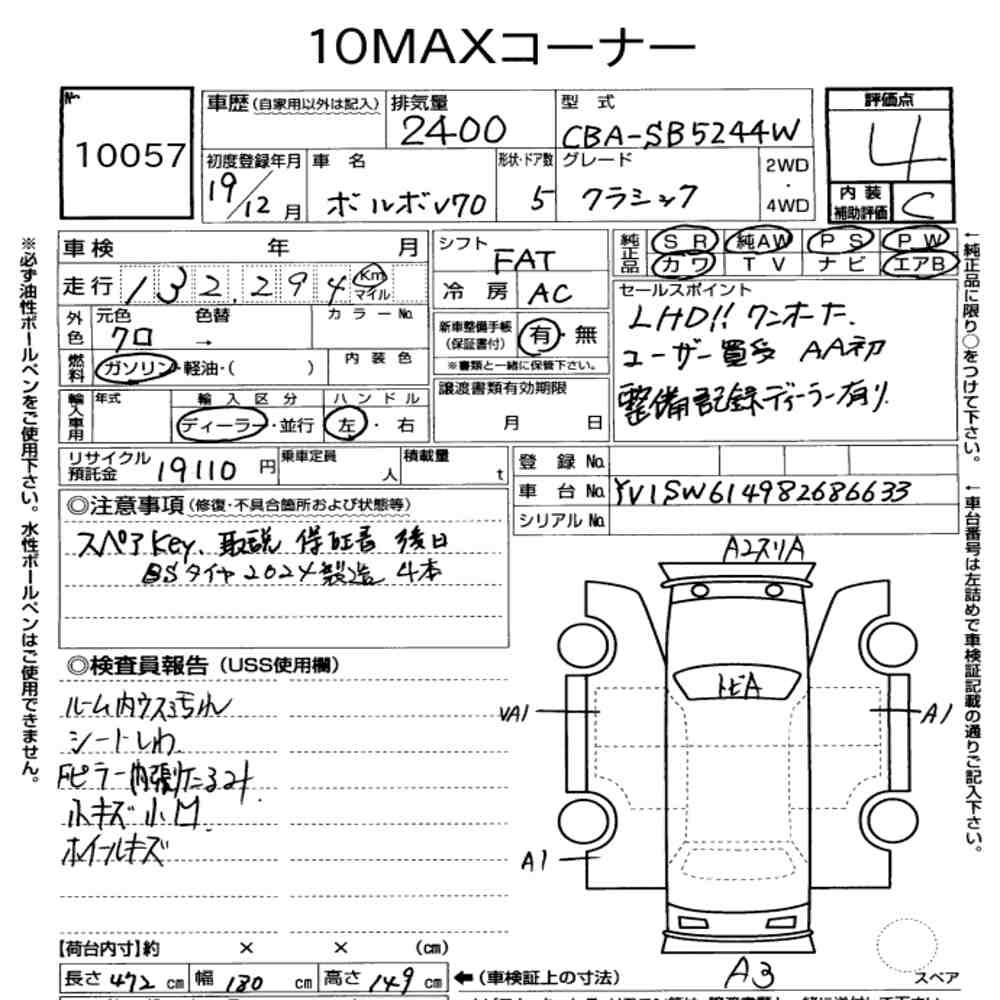 10MAXコーナー
No.
10057
車歴(自家用以外は記入)
排気量
2400
型 式
CBA-SB5244W
評価点
4
内装補助評価
C
初度登録年月
19/12月
車 名
ボルボV70
形状・ドア数
5
グレード
クラシック
2WD
・
4WD
車検 年 月
走行 132,294 Km マイル
外色
元色
クロ
色替
→
カラーNo.
燃料
ガソリン・軽油・( )
内装色
輸入車用
年式
輸入区分
ディーラー・並行
ハンドル
左・右
シフト
FAT
冷房
AC
新車整備手帳
(保証書付)
有・無
※書類と一緒に保管下さい。
譲渡書類有効期限
月 日
純正品
SR 純AW PS PW
カワ TV ナビ エアB
セールスポイント
LHD!! ワンオーナー.
ユーザー買受 AA初
整備記録ディーラー有り
リサイクル預託金
19110円
乗車定員
人
積載量
t
登録No.
車台No.
YV1SW614982686633
シリアルNo.
◎注意事項(修復・不具合箇所および状態等)
スペアKey、取説 保証書 後日
BSタイヤ2024製造 4本
◎検査員報告(USS使用欄)
ルーム内ウスヨゴレ
シートシワ
Fピラー内張り
小キズ小凹
ホイールキズ
A2スリA
トビA
VA1
A1
A1
A3
スペア
【荷台内寸】約 × × (cm)
長さ 472 cm 幅 180 cm 高さ 149 cm
←(車検証上の寸法)
※必ず油性ボールペンをご使用下さい。水性ボールペンはご使用できません。
←純正品に限り○をつけて下さい。
←車台番号は左詰めで車検証記載の通りご記入下さい。